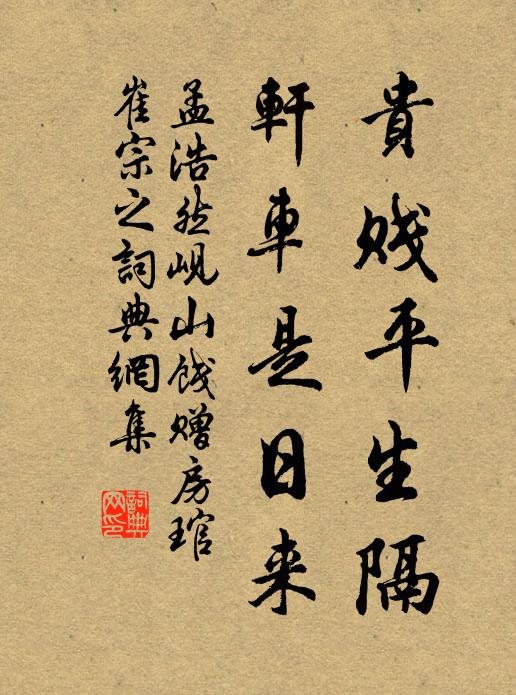 貴賤平生隔
軒車是日来
孟浩然峴山餞贈房琯
崔宗之詞典網集
詞典網印